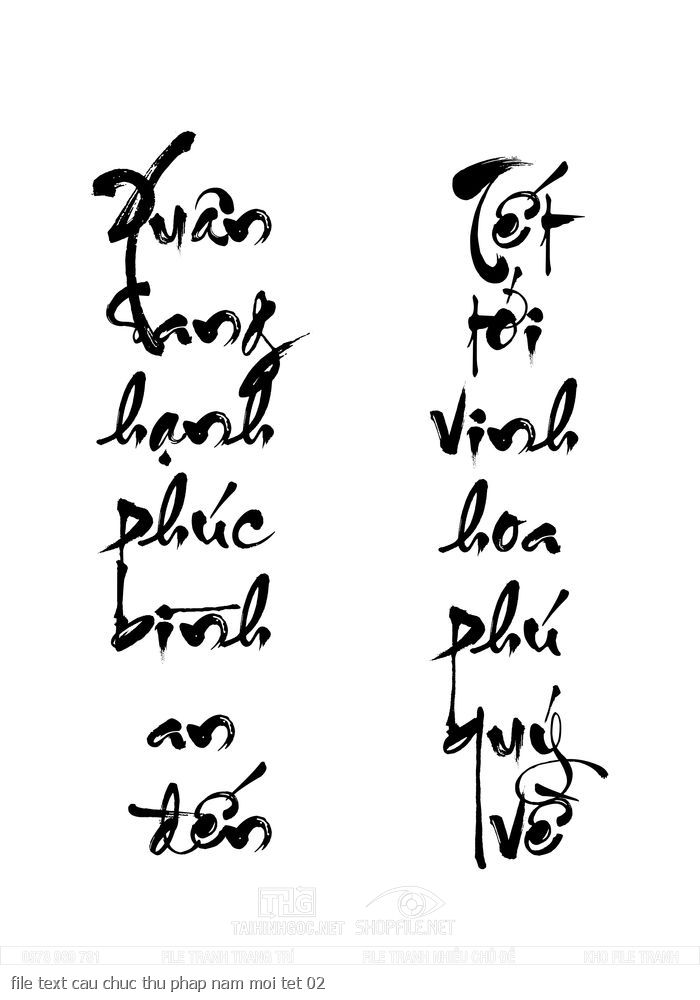 Xuân
sang
hạnh
phúc
bình
an
đến
Tết
tới
vinh
hoa
phú
quý
về
THG
TAIHINHGOC.NET SHOPFILE.NET
FILE TRANH TRANG TRÍ FILE TRANH NHIỀU CHỦ ĐỀ KHO FILE TRANH
file text cau chuc thu phap nam moi tet 02